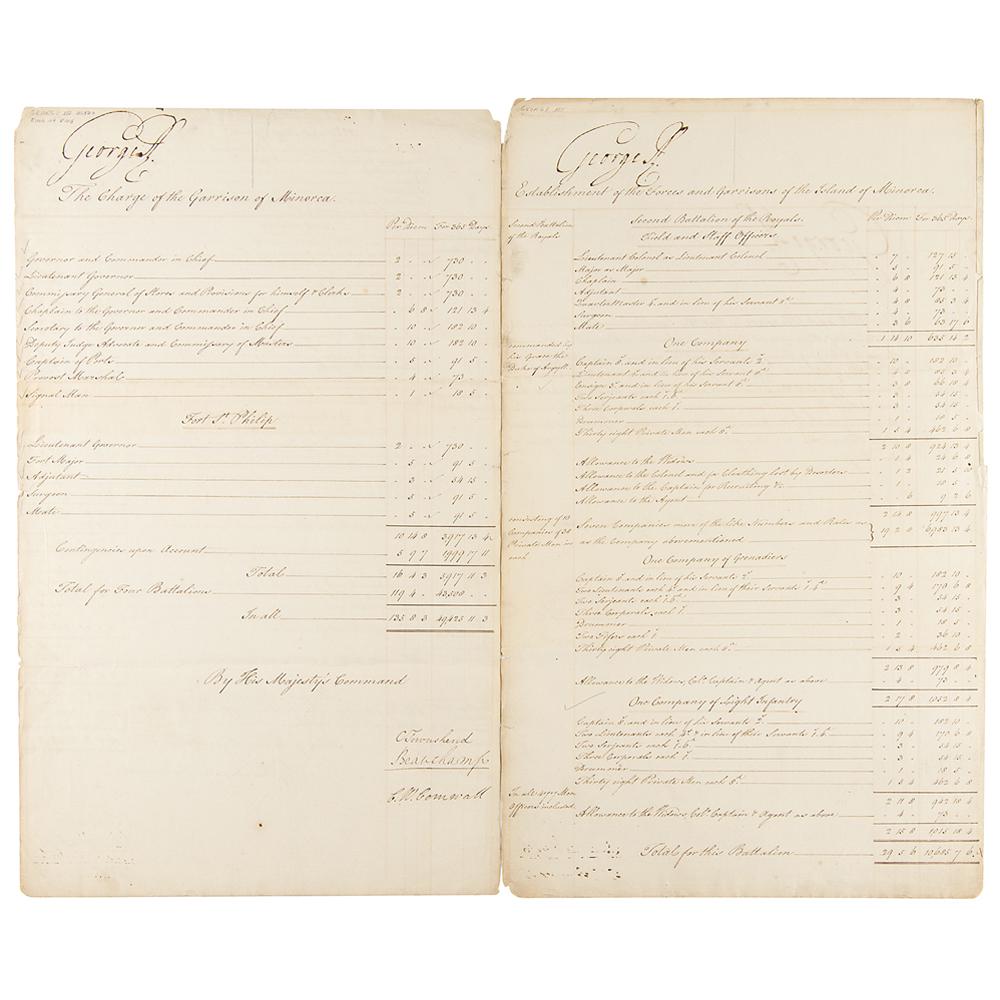 George R.
The Charge of the Garrison of Minorca.
Per Diem For 365 Days
Governor and Commander in Chief 2 - - 730 - -
Lieutenant Governor 2 - - 730 - -
Commissary General of Stores and Provisions for himself & Clerks 2 - - 730 - -
Chaplain to the Governor and Commander in Chief - 6 8 121 13 4
Secretary to the Governor and Commander in Chief - 10 - 182 10 -
Deputy Judge Advocate and Commissary of Musters - 10 - 182 10 -
Captain of Ports - 5 - 91 5 -
Provost Marshal - 4 - 73 - -
Signal Man - 1 - 18 5 -
Fort St. Philip
Lieutenant Governor 2 - - 730 - -
Fort Major - 5 - 91 5 -
Adjutant - 3 - 54 15 -
Surgeon - 5 - 91 5 -
Mate - 5 - 91 5 -
10 14 8 3917 13 4
Contingencies upon Account 5 9 7 1999 17 11
Total 16 4 3 5917 11 3
Total for Four Battalions 119 4 - 43,508 - -
In all 135 8 3 49425 11 3
By His Majesty's Command
C Townshend
Beauchamp
C. W. Cornwall
George R.
Establishment of the Forces and Garrisons of the Island of Minorca.
Second Battalion of the Royals
Second Battalion of the Royals.
Field and Staff Officers
Per Diem For 365 Days
Lieutenant Colonel as Lieutenant Colonel - 7 - 127 15 -
Major as Major - 5 - 91 5 -
Chaplain - 6 8 121 13 4
Adjutant - 4 - 73 - -
Quarter Master and in lieu of his Servant - 4 8 85 3 4
Surgeon - 4 - 73 - -
Mate - 3 6 63 17 6
1 14 10 635 14 2
commanded by his Grace the Duke of Argyll
One Company
Captain and in lieu of his Servants - 10 - 182 10 -
Lieutenant and in lieu of his Servant - 4 8 85 3 4
Ensign and in lieu of his Servant - 3 8 66 18 4
Two Serjeants each - 3 - 54 15 -
Three Corporals each - 3 - 54 15 -
Drummer - 1 - 18 5 -
Thirty eight Private Men each 1 5 4 462 6 8
2 10 8 924 13 4
Allowance to the Widows - 1 4 24 6 8
Allowance to the Colonel and for Cloathing lost by Deserters - 1 2 21 5 10
Allowance to the Captain for Recruiting &c. - 1 - 18 5 -
Allowance to the Agent - - 6 9 2 6
2 14 8 997 13 4
consisting of 10 Companies of 38 Private Men in each
Seven Companies more of the like Numbers and Rates as the Company abovementioned 19 2 8 6983 13 4
One Company of Grenadiers
Captain and in lieu of his Servants - 10 - 182 10 -
Two Lieutenants each and in lieu of their Servants - 9 4 170 6 8
Two Serjeants each - 3 - 54 15 -
Three Corporals each - 3 - 54 15 -
Drummer - 1 - 18 5 -
Two Fifers each - 2 - 36 10 -
Thirty eight Private Men each 1 5 4 462 6 8
2 13 8 979 8 4
Allowance to the Widows, Col. Captain & Agent as above - 4 - 73 - -
2 17 8 1052 8 4
One Company of Light Infantry
Captain and in lieu of his Servants - 10 - 182 10 -
Two Lieutenants each & in lieu of their Servants - 9 4 170 6 8
Two Serjeants each - 3 - 54 15 -
Three Corporals each - 3 - 54 15 -
Drummer - 1 - 18 5 -
Thirty eight Private Men each 1 5 4 462 6 8
2 11 8 942 18 4
In all Men Officers included
Allowance to the Widows, Col. Captain & Agent as above - 4 - 73 - -
2 15 8 1015 18 4
Total for this Battalion 29 5 6 10685 7 6